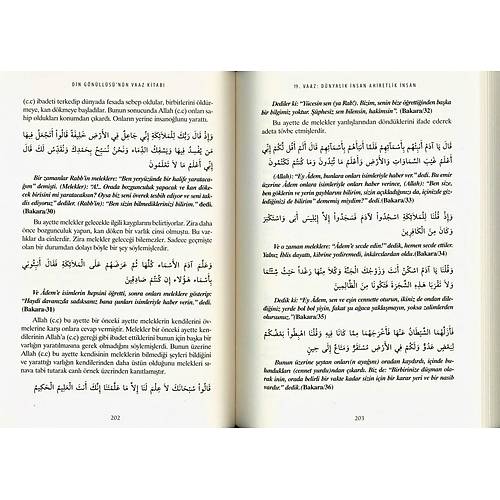 DİN GÖNÜLLÜSÜ'NÜN VAAZ KİTABI
(c.c) ibadeti terkedip dünyada fesada sebep oldular, birbirlerini öldürmeye,
kan dökmeye başladılar. Bunun sonucunda Allah (c.c) onları sahip
oldukları konumdan çıkardı. Onların yerine insanoğlunu yarattı.
وَإِذْ قَالَ رَبُّكَ لِلْمَلَائِكَةِ إِنِّي جَاعِلٌ فِي الْأَرْضِ خَلِيفَةً قَالُوا أَتَجْعَلُ فِيهَا
مَن يُفْسِدُ فِيهَا وَيَسْفِكُ الدِّمَاء وَنَحْنُ نُسَبِّحُ بِحَمْدِكَ وَنُقَدِّسُ لَكَ قَالَ
إِنِّي أَعْلَمُ مَا لاَ تَعْلَمُونَ
Bir zamanlar Rabb'in meleklere: "Ben yeryüzünde bir halife yaratacağım"
demişti. (Melekler): "A!.. Orada bozgunculuk yapacak ve kan dökecek
birisini mi yaratacaksın? Oysa biz seni överek tesbih ediyor ve seni takdis
ediyoruz" dediler. (Rabb'in): "Ben sizin bilmediklerinizi bilirim." dedi.
(Bakara/30)
Bu ayette melekler gelecekle ilgili kaygılarını belirtiyorlar. Zira daha
önce bozgunculuk yapan, kan döken bir varlık cinsi olmuştu. Bu varlıklar
cinlerdir. Zira melekler geleceği bilemezler. Sadece geçmişte
olan bir durumdan dolayı böyle bir şey söylemişlerdi.
وَعَلَّمَ آدَمَ الْأَسْمَاء كُلَّهَا ثُمَّ عَرَضَهُمْ عَلَى الْمَلَائِكَةِ فَقَالَ أَنبِئُونِي
بِأَسْمَاء هَؤُلاء إِن كُنتُمْ صَادِقِينَ
Ve Âdem'e isimlerin hepsini öğretti, sonra onları meleklere gösterip:
"Haydi davanızda sadıksanız bana şunları isimleriyle haber verin." dedi.
(Bakara/31)
Allah (c.c) bu ayette bir önceki ayette meleklerin kendilerini övmelerine
karşı onlara cevap vermiştir. Melekler bir önceki ayette kendilerinin
Allah'a (c.c) gereği gibi ibadet ettiklerini bunun için başka bir
varlığın yaratılmasına gerek olmadığını söylemişlerdi. Bunun üzerine
Allah (c.c) bu ayette kendisinin meleklerin bilmediği şeyleri bildiğini
ve yarattığı varlığın kendilerinden daha üstün olduğunu melekleri sınava
tabi tutarak canlı örnek üzerinden kanıtlamıştır.
قَالُوا سُبْحَانَكَ لاَ عِلْمَ لَنَا إِلاَّ مَا عَلَّمْتَنَا إِنَّكَ أَنتَ الْعَلِيمُ الْحَكِيمُ
202
19. VAAZ: DÜNYALIK İNSAN AHİRETLİK İNSAN
Dediler ki: "Yücesin sen (ya Rab!). Bizim, senin bize öğrettiğinden başka
bir bilgimiz yoktur. Şüphesiz sen bilensin, hakimsin". (Bakara/32)
Bu ayette de melekler yanlışlarından döndüklerini ifade ederek
adeta tövbe etmişlerdir.
قَالَ يَا آدَمُ أَنبِئْهُم بِأَسْمَآئِهِمْ فَلَمَّا أَنبَأَهُمْ بِأَسْمَآئِهِمْ قَالَ أَلَمْ أَقُل لَّكُمْ إِنِّي
أَعْلَمُ غَيْبَ السَّمَاوَاتِ وَالأَرْضِ وَأَعْلَمُ مَا تُبْدُونَ وَمَا كُنتُمْ تَكْتُمُونَ
(Allah): "Ey Âdem, bunlara onları isimleriyle haber ver." dedi. Bu emir
üzerine Âdem onlara isimleriyle onları haber verince, (Allah): "Ben size,
ben göklerin ve yerin gayblarını bilirim, sizin açıkladığınızı da, içinizde
gizlediğinizi de bilirim" dememiş miydim? dedi.(Bakara/33)
وَإِذْ قُلْنَا لِلْمَلاَئِكَةِ اسْجُدُواْ لآدَمَ فَسَجَدُواْ إِلاَّ إِبْلِيسَ أَبَى وَاسْتَكْبَرَ
وَكَانَ مِنَ الْكَافِرِينَ
Ve o zaman meleklere: "Âdem'e secde edin!" dedik, hemen secde ettiler.
Yalnız İblis dayattı, kibrine yediremedi, inkarcılardan oldu.(Bakara/34)
وَقُلْنَا يَا آدَمُ اسْكُنْ أَنتَ وَزَوْجُكَ الْجَنَّةَ وَكُلاَ مِنْهَا رَغَداً حَيْثُ شِئْتُمَا
وَلاَ تَقْرَبَا هَذِهِ الشَّجَرَةَ فَتَكُونَا مِنَ الْظَّالِمِينَ
Dedik ki: Ey Âdem, sen ve eşin cennette oturun, ikiniz de ondan dilediğiniz
yerde bol bol yiyin, fakat şu ağaca yaklaşmayın, yoksa zalimlerden
olursunuz. (Bakara/35)
فَأَزَلَّهُمَا الشَّيْطَانُ عَنْهَا فَأَخْرَجَهُمَا مِمَّا كَانَا فِيهِ وَقُلْنَا اهْبِطُواْ بَعْضُكُمْ
لِبَعْضٍ عَدُوٌّ وَلَكُمْ فِي الأَرْضِ مُسْتَقَرٌّ وَمَتَاعٌ إِلَى حِينٍ
Bunun üzerine şeytan onların(n ayağını) oradan kaydırdı, içinde bulundukları
(cennet yurdu)ndan çıkardı. Biz de: "Birbirinize düşman olarak
inin, orada belirli bir vakte kadar sizin için bir karar yeri ve bir nasib
vardır." dedik.(Bakara/36)
203